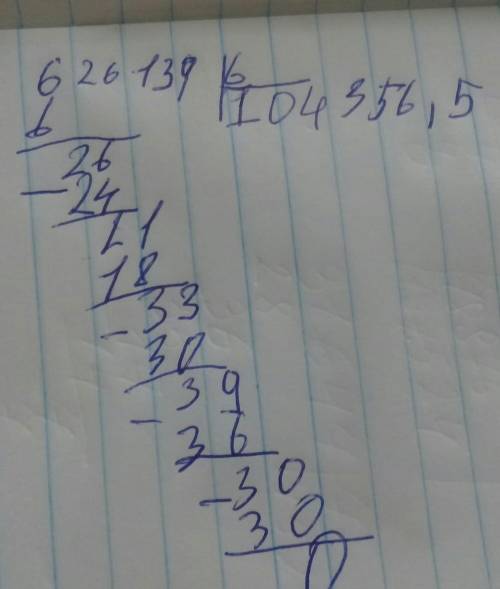 626139 6
6 104356,5
26
- 24
21
18
- 33
30
- 39
36
- 30
30
0